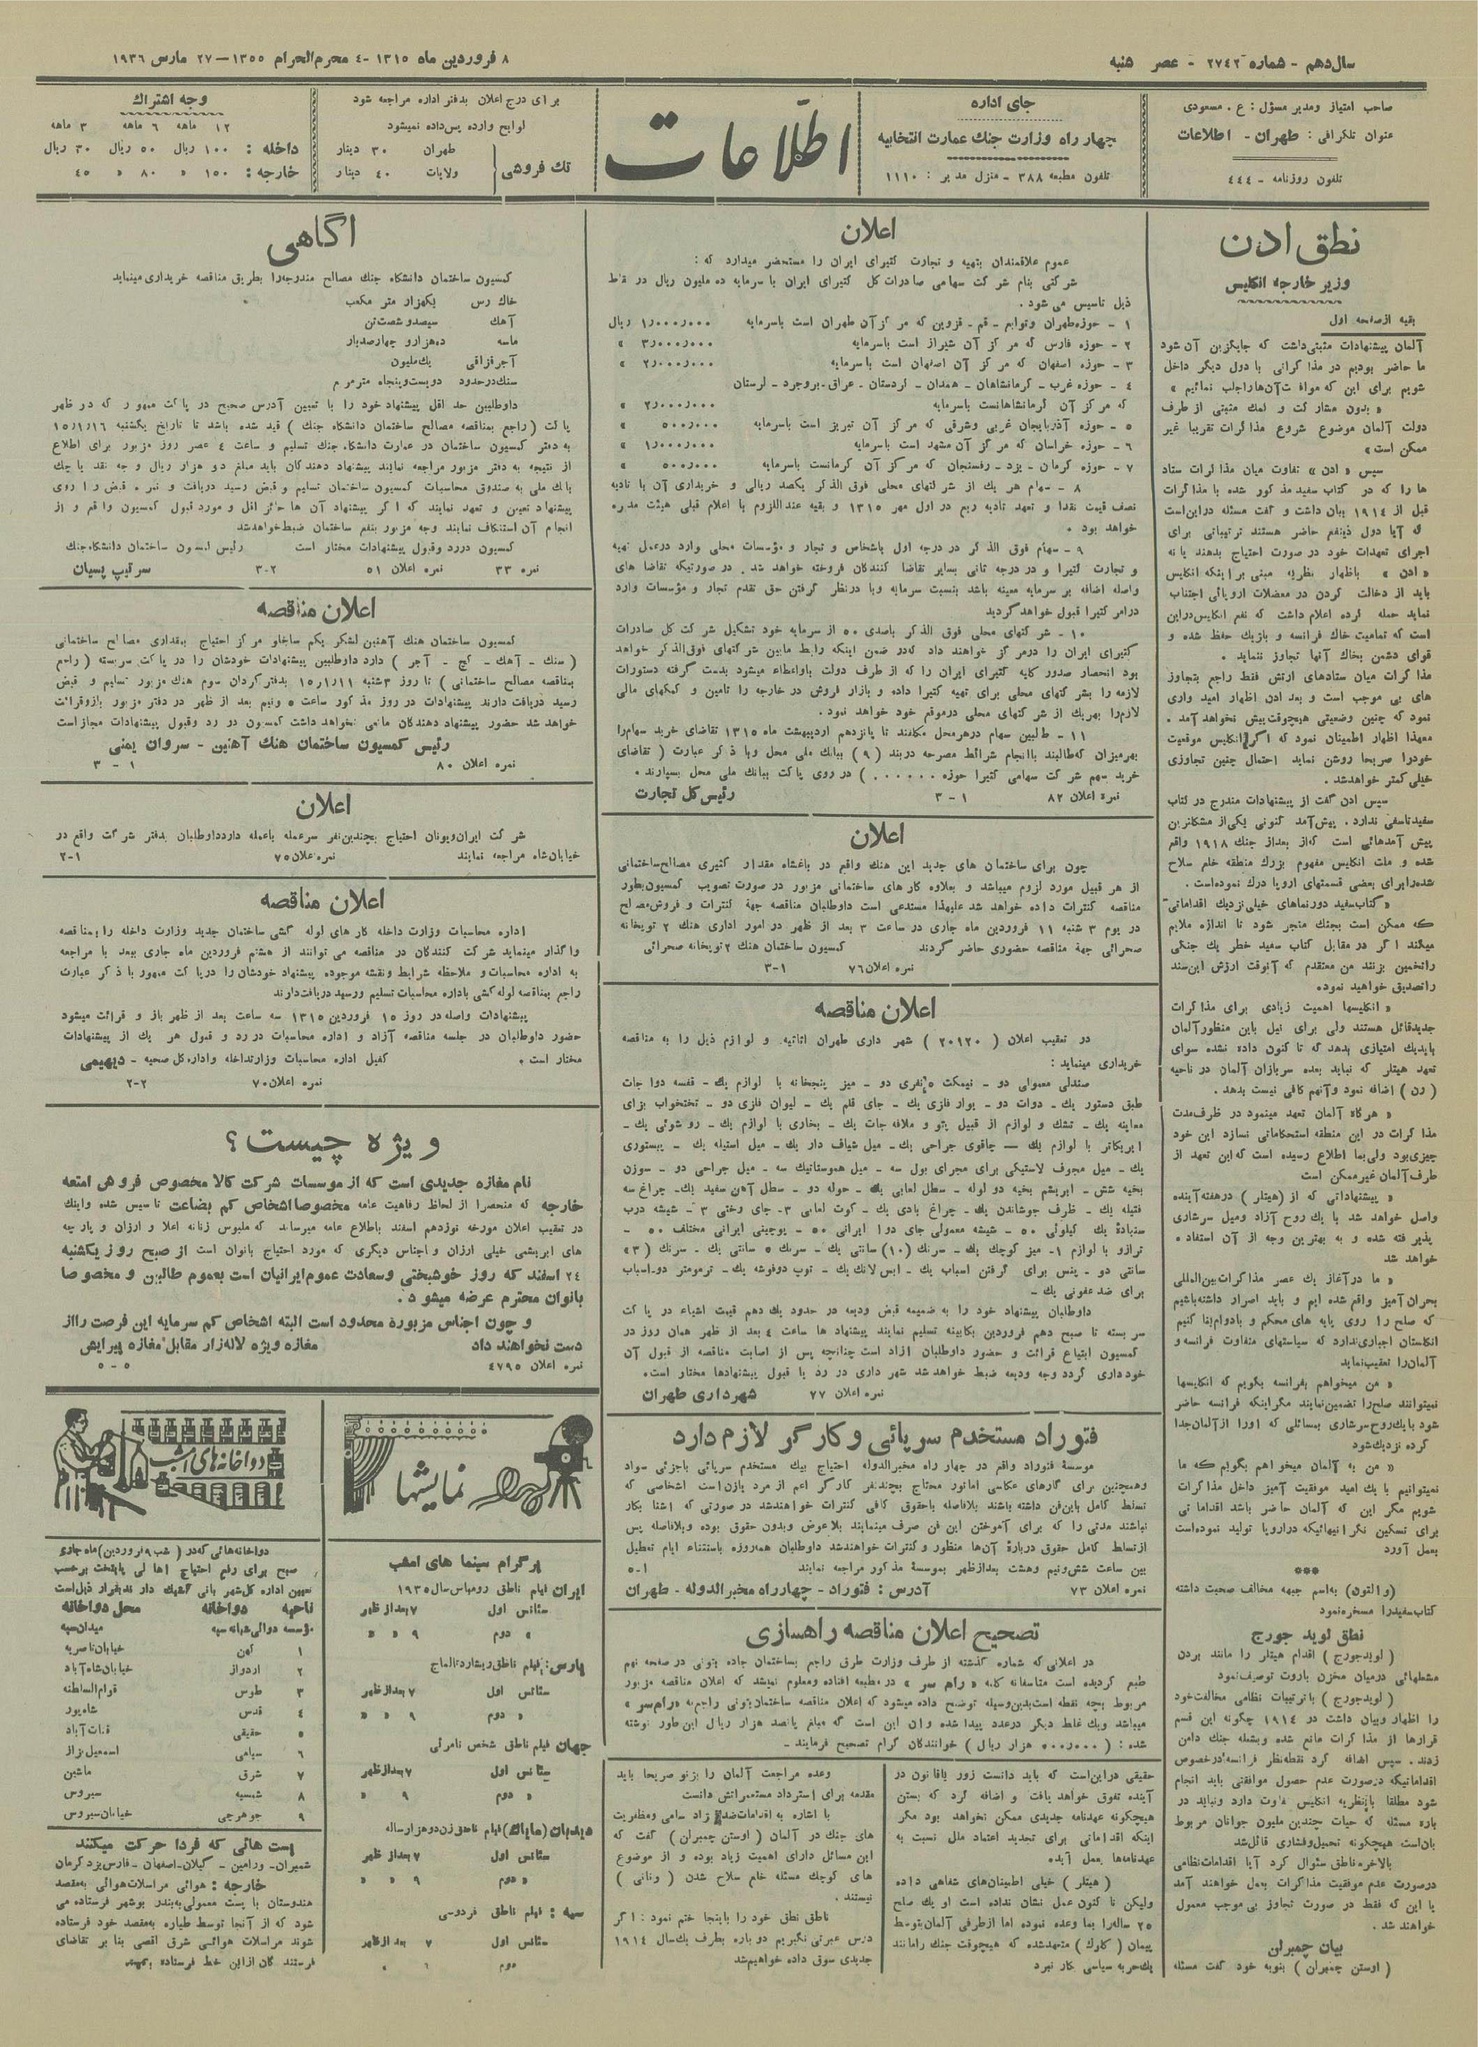 سال دهم - شماره ۲۷۴۲ - عصر شنبه
۸ فروردین ماه ۱۳۱۵ - ٤ محرم‌الحرام ۱۳۵۵ - ۲۷ مارس ۱۹۳٦
صاحب امتیاز ومدیر مسؤل : ع . مسعودی
عنوان تلگرافی : طهران - اطلاعات
تلفون روزنامه - ٤٤٤
جای اداره
چهار راه وزارت جنك عمارت انتخابیه
تلفون مطبعه ۳۸۸ - منزل مدیر : ۱۱۱۰
اطلاعات
برای درج اعلان بدفتر اداره مراجعه شود
لوایح وارده پس‌داده نمیشود
تك فروشی
طهران ۳۰ دینار
ولایات ٤۰ دینار
وجه اشتراك
۱۲ ماهه ٦ ماهه ۳ ماهه
داخله : ۱۰۰ ریال ۵۰ ریال ۳۰ ریال
خارجه : ۱۵۰ » ۸۰ » ٤۵
نطق ادن
وزیر خارجه انگلیس
بقیه از صفحه اول
آلمان پیشنهادات مثبتی داشت که جایگزین آن شود
ما حاضر بودیم در مذاکراتی با دول دیگر داخل
دولت آلمان موضوع شروع مذاکرات تقریبا غیر
ممکن است »
سیس « ادن » تفاوت میان مذاکرات ستاد
ها را که در کتاب سفید مذکور شده با مذاکرات
قبل از ۱۹۱٤ بیان داشت و گفت مسئله در این‌است
که آیا دول ذینفع حاضر هستند ترتیباتی برای
اجرای تعهدات خود در صورت احتیاج بدهند یا نه
« ادن » باظهار نظریه مبنی بر اینکه انگلیس
باید از دخالت کردن در معضلات اروپائی اجتناب
نماید حمله کرده اعلام داشت که نفع انگلیس در این
است که تمامیت خاك فرانسه و بلژیك حفظ شده و
قوای دشمن بخاك آنها تجاوز ننماید .
مذاکرات میان ستادهای ارتش فقط راجع بتجاوز
های بی موجب است و بعد ادن اظهار امید واری
نمود که چنین وضعیتی هیچوقت پیش نخواهد آمد .
معهذا اظهار اطمینان نمود که اگر انگلیس موقعیت
خودرا صریحا روشن نماید احتمال چنین تجاوزی
خیلی کمتر خواهدشد .
سپس ادن گفت از پیشنهادات مندرج در کتاب
سفید تاسفی ندارد . پیش‌آمد کنونی یکی از مشکلترین
پیش آمدهائی است که از بعد از جنك ۱۹۱۸ واقع
شده و ملت انگلیس مفهوم بزرك منطقه خلع سلاح
شده را برای بعضی قسمتهای اروپا درك نموده است .
« کتاب سفید دورنماهای خیلی نزدیك اقداماتی
که ممکن است بجنك منجر شود تا اندازه ملایم
میکند اگر در مقابل کتاب سفید خطر یك جنگی
را تخمین بزنند من معتقدم که آنوقت ارزش این سند
را تصدیق خواهید نمود .
« انگلیسها اهمیت زیادی برای مذاکرات
جدید قائل هستند ولی برای نیل باین منظور آلمان
باید یك امتیازی بدهد که تا کنون داده نشده سوای
تعهد هیتلر که نباید بعده سربازان آلمان در ناحیه
( رن ) اضافه نمود و آنهم کافی نیست بدهد .
« هرگاه آلمان تعهد مینمود در ظرف مدت
مذاکرات در این منطقه استحکاماتی نسازد این خود
چیزی بود ولی بما اطلاع رسیده است که این تعهد از
طرف آلمان غیر ممکن است
« پیشنهاداتی که از (هیتلر) در هفته آینده
واصل خواهد شد با یك روح آزاد ومیل سرشاری
پذیرفته شده و به بهترین وجه از آن استفاده
خواهد شد
« ما در آغاز یك عصر مذاکرات بین‌المللی
بحران آمیز واقع شده ایم و باید اصرار داشته باشیم
که صلح را روی پایه های محکم و بادوام بنا کنیم
انگلستان اجباری ندارد که سیاستهای متفاوت فرانسه و
آلمان را تعقیب نماید
« من میخواهم بفرانسه بگویم که انگلیسها
نمیتوانند صلح را تضمین نمایند مگر اینکه فرانسه حاضر
شود بایك روح سرشاری بمسائلی که اورا از آلمان جدا
کرده نزدیك شود
« من به آلمان میخواهم بگویم که ما
نمیتوانیم با یك امید موفقیت آمیز داخل مذاکرات
شویم مگر این که آلمان حاضر باشد اقداماتی
برای تسکین نگرانیهائیکه در اروپا تولید نموده است
بعمل آورد
***
(والتون) به‌اسم جبهه مخالف صحبت داشته
کتاب سفید را مسخره نمود
نطق لوید جورج
(لوید جورج) اقدام هیتلر را مانند بردن
مشعلهائی در میان مخزن باروت توصیف نمود
(لوید جورج) با ترتیبات نظامی مخالفت خود
را اظهار وبیان داشت در ۱۹۱٤ چگونه این قسم
قرارها از مذاکرات مانع شده وبشعله جنك دامن
زدند . سپس اضافه کرد نقطه نظر فرانسه در خصوص
اقداماتیکه در صورت عدم حصول موافقتی باید انجام
شود مطلقا با نظریه انگلیس تفاوت دارد ونباید در
باره مسئله که حیات چندین ملیون جوانان مربوط
بان است هیچگونه تحمیل وفشاری قائل شد
بالاخره ناطق سئوال کرد آیا اقدامات نظامی
در صورت عدم موفقیت مذاکرات بعمل خواهند آمد
یا این که فقط در صورت تجاوز بی موجب معمول
خواهند شد .
بیان چمبرلن
( اوستن چمبرلن ) بنوبه خود گفت مسئله
حقیقی در این‌است که باید دانست زور یا قانون در
آینده تفوق خواهد یافت و اضافه کرد که بستن
هیچگونه عهدنامه جدیدی ممکن نخواهد بود مگر
اینکه اقداماتی برای تجدید اعتماد ملل نسبت به
عهدنامه‌ها بعمل آید .
( هیتلر ) خیلی اطمینان‌های شفاهی داده
ولیکن تا کنون عمل نشان نداده است او یك صلح
۲۵ ساله را بما وعده نموده اما از طرفی آلمان بتوسط
پیمان (کلوك) متعهد شده که هیچوقت جنك را مانند
یك حربه سیاسی بکار نبرد
وعده مراجعت آلمان را بژنو صریحا باید
مقدمه برای استرداد مستعمراتش دانست
با اشاره به اقدامات ضد نژاد سامی ومظفریت
های جنك در آلمان ( اوستن چمبرلن ) گفت که
این مسائل دارای اهمیت زیاد بوده و از موضوع
های کوچك مسئله خلع سلاح شدن ( رنانی )
نیستند .
ناطق نطق خود را باینجا ختم نمود : اگر
درس عبرتی نگیریم دوباره بطرف یك سال ۱۹۱٤
جدیدی سوق داده خواهیم شد
اعلان
عموم علاقمندان بتهیه و تجارت کتیرای ایران را مستحضر میدارد که :
شرکتی بنام شرکت سهامی صادرات کل کتیرای ایران با سرمایه ده ملیون ریال در نقاط
ذیل تاسیس می شود .
۱ - حوزه طهران وتوابع - قم - قزوین که مرکز آن طهران است باسرمایه ۱٫۰۰۰٫۰۰۰ ریال
۲ - حوزه فارس که مرکز آن شیراز است باسرمایه ۳٫۰۰۰٫۰۰۰ »
۳ - حوزه اصفهان که مرکز آن اصفهان است باسرمایه ۲٫۰۰۰٫۰۰۰ »
٤ - حوزه غرب - کرمانشاهان - همدان - کردستان - عراق - بروجرد - لرستان
که مرکز آن کرمانشاهانست باسرمایه ۲٫۰۰۰٫۰۰۰ »
۵ - حوزه آذربایجان غربی وشرقی که مرکز آن تبریز است باسرمایه ۵۰۰٫۰۰۰ »
٦ - حوزه خراسان که مرکز آن مشهد است باسرمایه ۱٫۰۰۰٫۰۰۰ »
۷ - حوزه کرمان - یزد - رفسنجان که مرکز آن کرمانست باسرمایه ۵۰۰٫۰۰۰ »
۸ - سهام هر یك از شرکتهای محلی فوق الذکر یکصد ریالی و خریداری آن با تادیه
نصف قیمت نقدا و تعهد تادیه ربع در اول مهر ۱۳۱۵ و بقیه عند اللزوم با اعلام قبلی هیئت مدیره
خواهد بود .
۹ - سهام فوق الذکر در درجه اول باشخاص و تجار و مؤسسات محلی وارد در عمل تهیه
و تجارت کتیرا و در درجه ثانی بسایر تقاضا کنندگان فروخته خواهد شد . در صورتیکه تقاضا های
واصله اضافه بر سرمایه معینه باشد بنسبت سرمایه وبا در نظر گرفتن حق تقدم تجار و مؤسسات وارد
در امر کتیرا قبول خواهد گردید
۱۰ - شرکتهای محلی فوق الذکر باصدی ۵۰ از سرمایه خود تشکیل شرکت کل صادرات
کتیرای ایران را در مرکز خواهند داد که در ضمن اینکه رابط مابین شرکتهای فوق‌الذکر خواهد
بود انحصار صدور کلیه کتیرای ایران را که از طرف دولت باو اعطاء میشود بدست گرفته دستورات
لازمه را بشرکتهای محلی برای تهیه کتیرا داده و بازار فروش در خارجه را تامین و کمکهای مالی
لازم را بهریك از شرکتهای محلی در موقع خود خواهد نمود .
۱۱ - طالبین سهام در هر محل مکلفند تا پانزدهم اردیبهشت ماه ۱۳۱۵ تقاضای خرید سهام را
بهر میزان که طالبند با انجام شرائط مصرحه در بند ( ۹ ) ببانك ملی محل وبا ذکر عبارت ( تقاضای
خرید سهم شرکت سهامی کتیرا حوزه ......) در روی پاکت ببانك ملی محل بسپارند .
نمره اعلان ۸۲ ۱ - ۳ رئیس کل تجارت
اعلان
چون برای ساختمان های جدید این هنك واقع در باغشاه مقدار کثیری مصالح ساختمانی
از هر قبیل مورد لزوم میباشد و بعلاوه کار های ساختمانی مزبور در صورت تصویب کمسیون بطور
مناقصه کنترات داده خواهد شد علیهذا مستدعی است داوطلبان مناقصه جهة کنترات و فروش مصالح
در یوم ۳ شنبه ۱۱ فروردین ماه جاری در ساعت ۳ بعد از ظهر در امور اداری هنك ۲ توپخانه
صحرائی جهة مناقصه حضوری حاضر گردند کمسیون ساختمان هنك ۲ توپخانه صحرائی
نمره اعلان ۷٦ ۳-۱
اعلان مناقصه
در تعقیب اعلان ( ۲۰۱۲۰ ) شهر داری طهران اثاثیه و لوازم ذیل را به مناقصه
خریداری مینماید :
صندلی معمولی دو - نیمکت ۵ نفری دو - میز پنجخانه با لوازم یك - قفسه دوا جات
طبق دستور یك - دوات دو - لیوار فلزی یك - جای قلم یك - لیوان فلزی دو - تختخواب برای
معاینه یك - تشك و لوازم از قبیل پتو و ملافه جات یك - بخاری با لوازم یك - روشوئی یك -
با لوازم یك - چاقوی جراحی یك - میل شیاف دار یك - میل استیله یك - بیستوری
یك - میل مجوف لاستیکی برای مجرای بول سه - میل هموستاتیك سه - میل جراحی دو - سوزن
بخیه شش - ابریشم بخیه دو لوله - سطل لعابی یك - حوله دو - سطل آهن سفید یك - چراغ سه
فتیله یك - ظرف جوشاندن یك - چراغ بادی یك - کوت لعابی ۳ - جای رختی ۳ - شیشه درب
سنبادهٔ یك کیلوئی ۵۰ - شیشه معمولی جای دوا ایرانی ۵۰ - پوچینی ایرانی مختلف ۵۰ -
ترازو با لوازم ۱ - میز کوچك یك - سرنك (۱۰) سانتی یك - سرنك ۵ سانتی یك - سرنك (۳»
سانتی دو - پنس برای گرفتن اسباب یك - یك - توپ دوفوشه یك - ترمومتر دو - اسباب
برای ضد عفونی یك -
داوطلبان پیشنهاد خود را به ضمیمه قبض ودیعه در حدود یك دهم قیمت اشیاء در پاکت
سر بسته تا صبح دهم فروردین بکابینه تسلیم نمایند پیشنهاد ها ساعت ٤ بعد از ظهر همان روز در
کمسیون ابتیاع قرائت و حضور داوطلبان آزاد است چنانچه پس از اصابت مناقصه از قبول آن
خود داری گردد وجه ودیعه ضبط خواهد شد شهر داری در رد یا قبول پیشنهادها مختار است .
نمره اعلان ۷۷ شهرداری طهران
فتوراد مستخدم سرپائی و کارگر لازم دارد
موسسهٔ فتوراد واقع در چهار راه مخبرالدوله احتیاج بیك مستخدم سرپائی باجزئی سواد
وهمچنین برای کارهای عکاسی اماتور محتاج بچند نفر کارگر اعم از مرد یا زن است اشخاصی که
تسلط کامل باین فن داشته باشند بلافاصله باحقوق کافی کنترات خواهند شد در صورتی که اشنا بکار
نباشند مدتی را که برای آموختن این فن صرف مینمایند بلاعوض وبدون حقوق بوده وبلافاصله پس
از تسلط کامل حقوق درباره آن‌ها منظور و کنترات خواهند شد داوطلبان همه روزه باستثناء ایام تعطیل
بین ساعت شش ونیم وهشت بعد از ظهر بموسسهٔ مذکور مراجعه نمایند ۵-۱
نمره اعلان ۷۳ آدرس : فتوراد - چهارراه مخبرالدوله - طهران
تصحیح اعلان مناقصه راهسازی
در اعلانی که شماره گذشته از طرف وزارت طرق راجع بساختمان جاده بتونی در صفحه نهم
طبع گردیده است متاسفانه کلمه « رام سر » در مطبعه افتاده ومعلوم نمیشد که اعلان مناقصه مزبور
مربوط بچه نقطه است بدین وسیله توضیح داده میشود که اعلان مناقصه ساختمان بتونی راجع به «رام سر»
میباشد ویك غلط دیگر در عدد پیدا شده وان این است که مبلغ پانصد هزار ریال این طور نوشته
شده : ( ۵۰۰٫۰۰۰ هزار ریال ) خوانندگان کرام تصحیح فرمایند -
آگاهی
کمسیون ساختمان دانشگاه جنك مصالح مندرجه را بطریق مناقصه خریداری مینماید
خاك رس یکهزار متر مکعب
آهك سیصد و شصت تن
ماسه ده هزار و چهارصد بار
آجر قزاقی یك ملیون
سنك در حدود دویست و پنجاه متر مربع
داوطلبین حد اقل پیشنهاد خود را با تعیین آدرس صحیح در پاکت ممهور که در ظهر
پاکت ( راجع بمناقصه مصالح ساختمان دانشگاه جنك ) قید شده باشد تا تاریخ یکشنبه ۱۵/۱/۱٦
به دفتر کمسیون ساختمان در عمارت دانشگاه جنك تسلیم و ساعت ٤ عصر روز مزبور برای اطلاع
از نتیجه به دفتر مزبور مراجعه نمایند پیشنهاد دهندگان باید مبلغ دو هزار ریال وجه نقد یا چك
بانك ملی به صندوق محاسبات کمسیون ساختمان تسلیم و قبض رسید دریافت و نمره قبض را روی
پیشنهاد تعیین و تعهد نمایند که اگر پیشنهاد آن ها حائز اقل و مورد قبول کمسیون واقع و از
انجام آن استنکاف نمایند وجه مزبور بنفع ساختمان ضبط خواهد شد
کمسیون در رد وقبول پیشنهادات مختار است رئیس کمسیون ساختمان دانشگاه جنك
نمره ۳۳ نمره اعلان ۵۱ ۳-۲ سرتیپ پسیان
اعلان مناقصه
کمسیون ساختمان هنك آهنین لشکر یکم ساخلو مرکز احتیاج بمقداری مصالح ساختمانی
( سنك - آهك - گچ - آجر ) دارد داوطلبین پیشنهادات خودشان را در پاکت سربسته ( راجع
بمناقصه مصالح ساختمانی ) تا روز ۳ شنبه ۱۵/۱/۱۱ بدفتر گردان سوم هنك مزبور تسلیم و قبض
رسید دریافت دارند پیشنهادات در روز مذکور ساعت ۵ ونیم بعد از ظهر در دفتر مزبور باز وقرائت
خواهد شد حضور پیشنهاد دهندگان مانعی نخواهد داشت کمسیون در رد وقبول پیشنهادات مجاز است
رئیس کمسیون ساختمان هنك آهنین - سروان یمنی
نمره اعلان ۸۰ ۱ - ۳
اعلان
شرکت ایران ویونان احتیاج بچندین نفر سر عمله با عمله دارد داوطلبان بدفتر شرکت واقع در
خیابان شاه مراجعه نمایند نمره اعلان ۷۵ ۲-۱
اعلان مناقصه
اداره محاسبات وزارت داخله کار های لوله کشی ساختمان جدید وزارت داخله را بمناقصه
واگذار مینماید شرکت کنندگان در مناقصه می توانند از هشتم فروردین ماه جاری ببعد با مراجعه
به اداره محاسبات و ملاحظه شرایط ونقشه موجوده پیشنهاد خودشان را در پاکت ممهور با ذکر عبارت
راجع بمناقصه لوله کشی باداره محاسبات تسلیم ورسید دریافت دارند
پیشنهادات واصله در روز ۱۵ فروردین ۱۳۱۵ سه ساعت بعد از ظهر باز و قرائت میشود
حضور داوطلبان در جلسه مناقصه آزاد و اداره محاسبات در رد و قبول هر یك از پیشنهادات
مختار است . کفیل اداره محاسبات وزارتداخله واداره کل صحیه - دیهیمی
نمره اعلان ۷۰ ۲-۲
ویژه چیست ؟
نام مغازه جدیدی است که از موسسات شرکت کالا مخصوص فروش امتعه
خارجه که منحصرا از لحاظ رفاهیت عامه مخصوصا اشخاص کم بضاعت تاسیس شده واینك
در تعقیب اعلان مورخه نوزدهم اسفند باطلاع عامه میرساند که ملبوس زنانه اعلا و ارزان و پارچه
های ابریشمی خیلی ارزان و اجناس دیگری که مورد احتیاج بانوان است از صبح روز یکشنبه
۲٤ اسفند که روز خوشبختی وسعادت عموم ایرانیان است بعموم طالبین و مخصوصا
بانوان محترم عرضه میشود .
و چون اجناس مزبوره محدود است البته اشخاص کم سرمایه این فرصت را از
دست نخواهند داد مغازه ویژه لاله زار مقابل مغازه پیرایش
نمره اعلان ٤۷۹۵ ۵ - ۵
نمایشها
پرگرام سینما های امشب
ایران فیلم ناطق رومباس سال ۱۹۳۵
سئانس اول ۷ بعد از ظهر
» دوم ۹ » »
پارس : فیلم ناطق ریشارد تالماج
سئانس اول ۷ بعد از ظهر
» دوم ۹ » »
جهان فیلم ناطق شخص نامرئی
سئانس اول ۷ بعد از ظهر
» دوم ۹ »
دیدبان (مایاك) فیلم ناطق زن دو هزار ساله
سئانس اول ۷ بعد از ظهر
» دوم ۹ » »
سپه : فیلم ناطق فردوسی
سئانس اول ۷ بعد از ظهر
دوم
دواخانه‌های امشب
دواخانه‌هائی که در ( شب ۹ فروردین ) ماه جاری
صبح برای رفع احتیاج اهالی پایتخت برحسب
تعیین اداره کل شهربانی کشیك دارند بقرار ذیل است
ناحیه دواخانه محل دواخانه
مؤسسه دوائی شبانه سپه میدان سپه
۱ کهن خیابان ناصریه
۲ اردواز خیابان شاه آباد
۳ طوس قوام السلطنه
٤ قدس شاهپور
۵ حقیقی قنات آباد
٦ سیامی اسمعیل بزاز
۷ شرق ماشین
۸ شمسیه سیروس
۹ جوهرچی خیابان سیروس
پست هائی که فردا حرکت میکنند
شمیران - ورامین - گیلان - اصفهان - فارس یزد کرمان
خارجه : هوائی مراسلات هوائی به‌مقصد
هندوستان با پست معمولی به‌بندر بوشهر فرستاده می
شود که از آنجا توسط طیاره به‌مقصد خود فرستاده
شوند مراسلات هوائی شرق اقصی بنا بر تقاضای
فرستندگان از این خط فرستاده